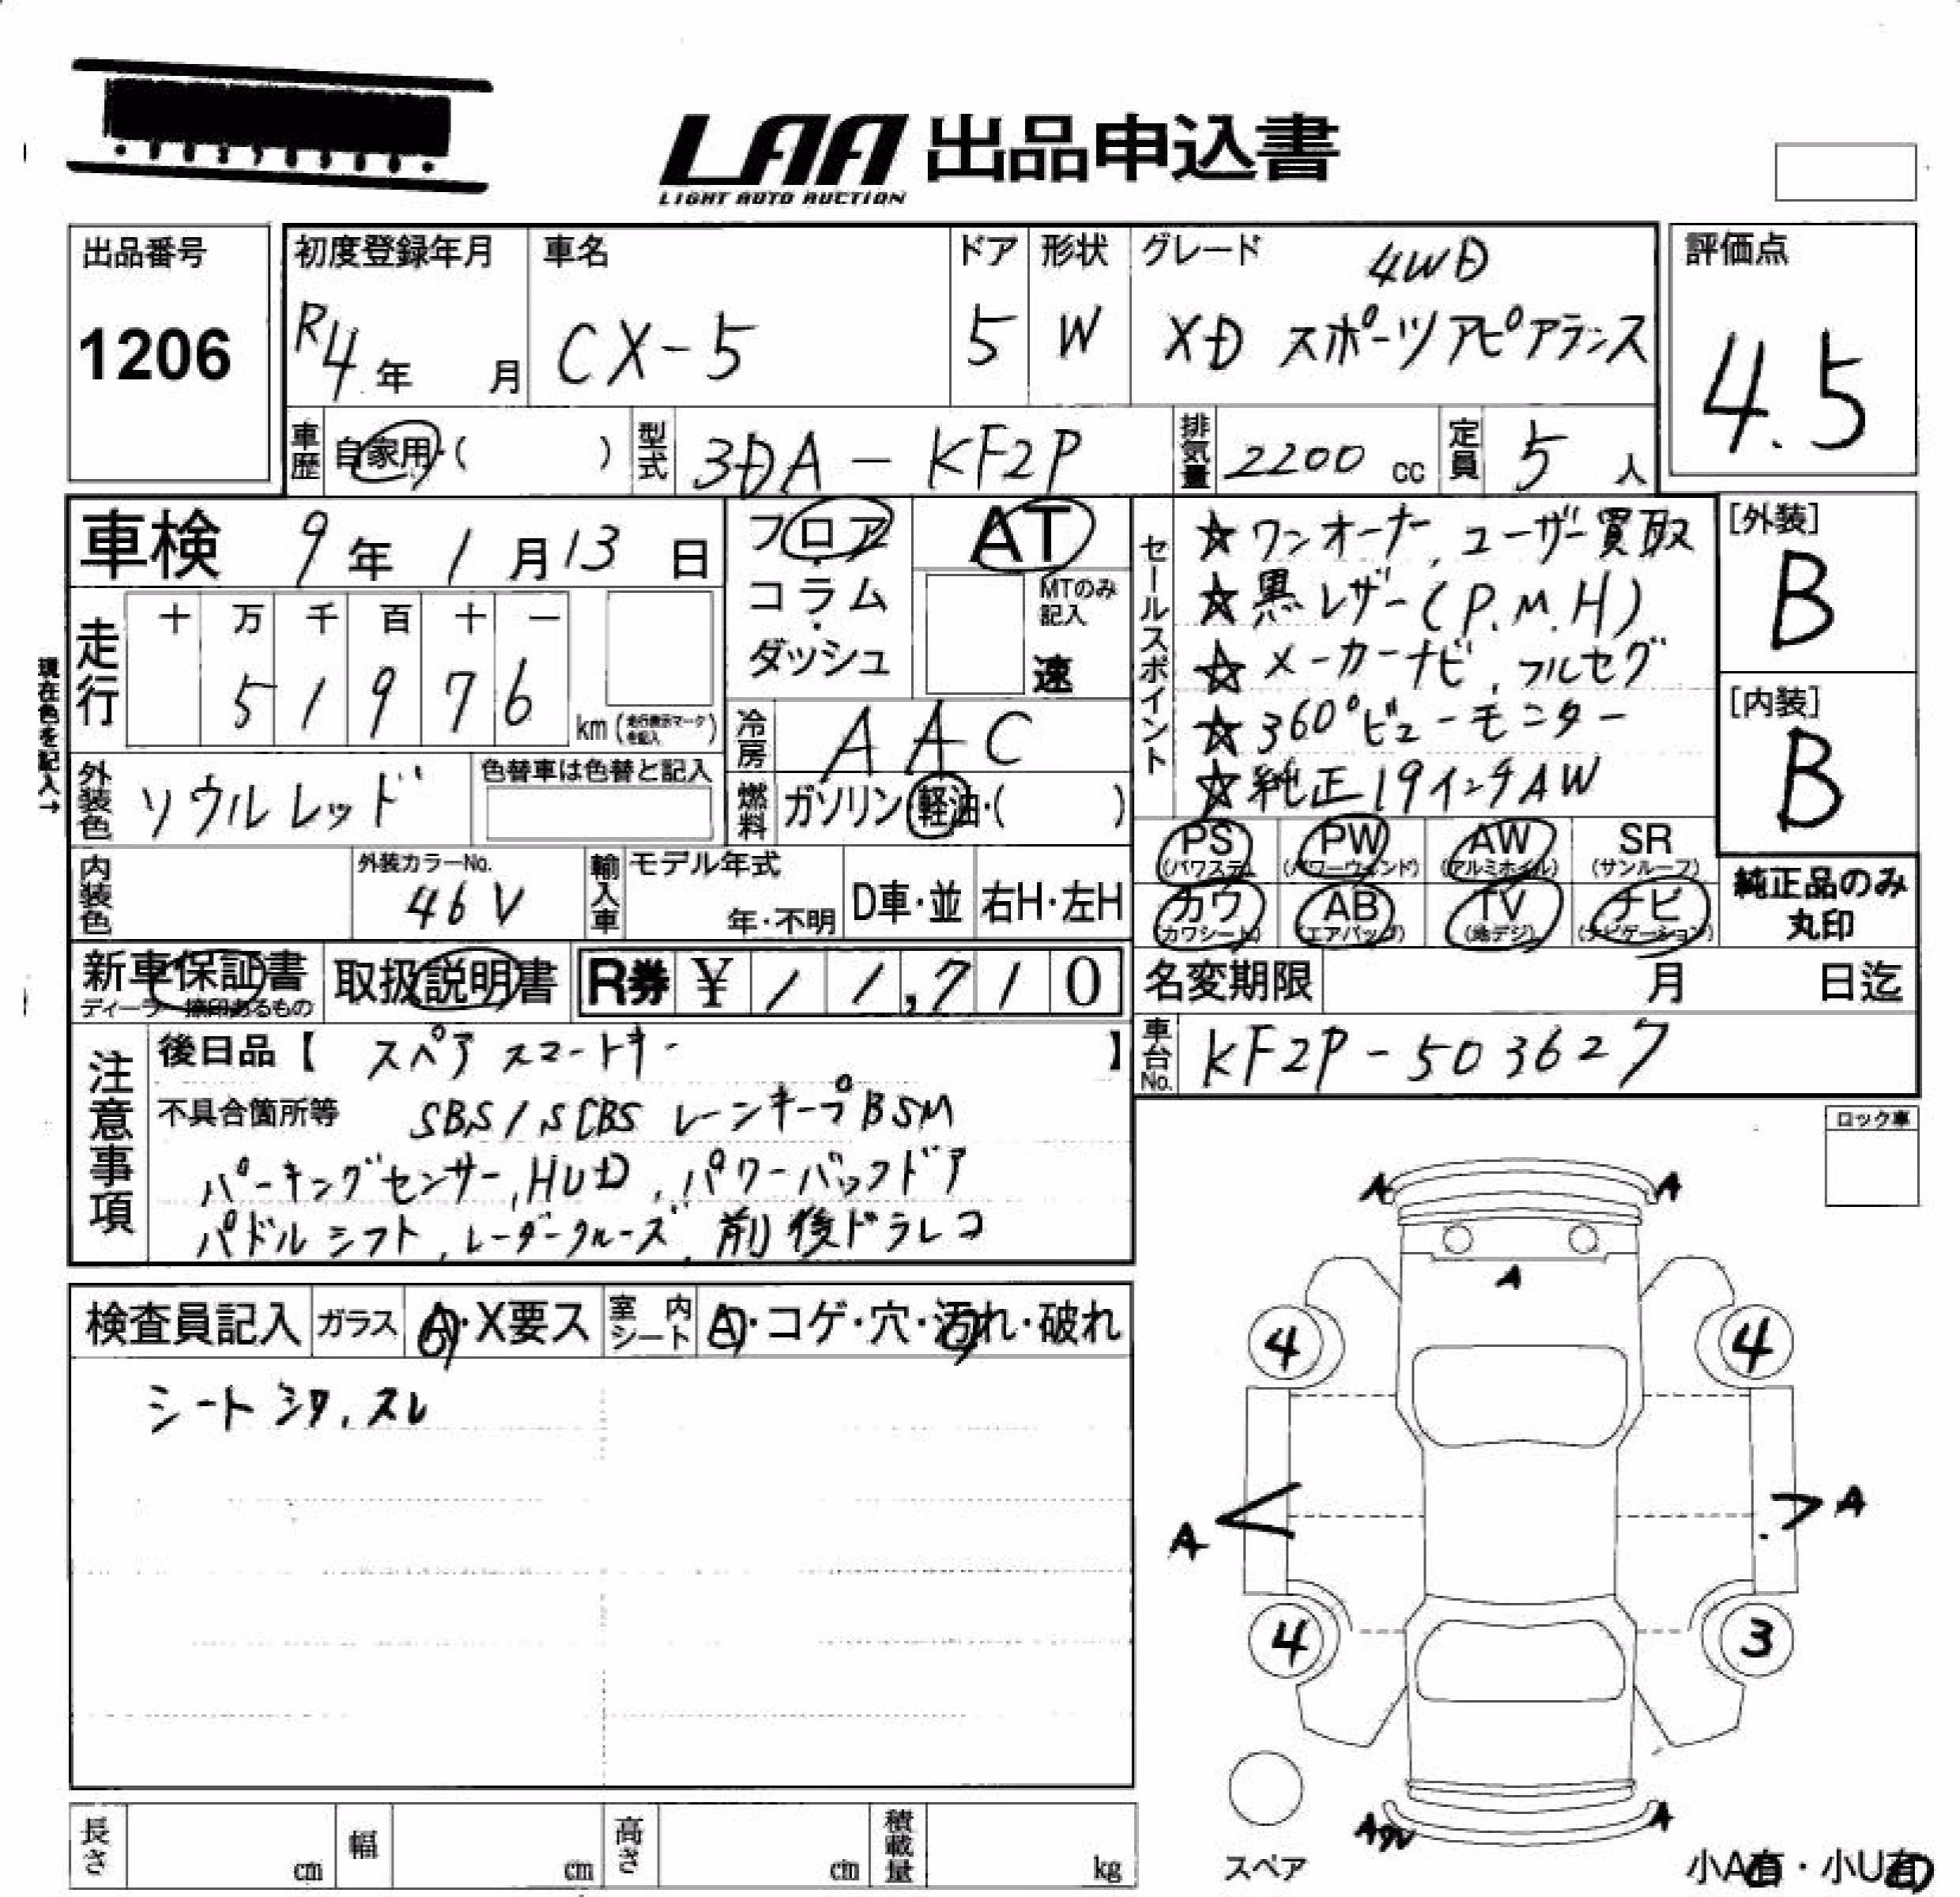 LAA 出品申込書
LIGHT AUTO AUCTION
出品番号
1206
初度登録年月
R4年 月
車名
CX-5
ドア
5
形状
W
グレード
4WD
XD スポーツアピアランス
評価点
4.5
車歴
自家用・( )
型式
3DA-KF2P
排気量
2200 cc
定員
5 人
車検 9年 1月13日
フロア
コラム
ダッシュ
AT
MTのみ記入
速
セールスポイント
☆ワンオーナー, ユーザー買取
☆黒レザー(P.M.H)
☆メーカーナビ, フルセグ
☆360°ビューモニター
☆純正19インチAW
[外装]
B
[内装]
B
現在色を記入→
走行
十 万 千 百 十 一
5 1 9 7 6
km (走行表示マークを記入)
冷房
AAC
燃料
ガソリン・軽油・( )
外装色
ソウルレッド
色替車は色替と記入
内装色
外装カラーNo.
46V
輸入車
モデル年式
年・不明
D車・並
右H・左H
PS (パワステ)
PW (パワーウィンド)
AW (アルミホイル)
SR (サンルーフ)
カワ (カワシート)
AB (エアバッグ)
TV (地デジ)
ナビ (ナビゲーション)
純正品のみ
丸印
新車保証書
ディーラー捺印あるもの
取扱説明書
R券 ¥ 11,710
名変期限 月 日迄
車台No.
KF2P-503627
注意事項
後日品【 スペアスマートキー 】
不具合箇所等 SBS/SCBS レーンキープ BSM
パーキングセンサー, HUD, パワーバックドア
パドルシフト, レーダークルーズ, 前後ドラレコ
ロック車
検査員記入
ガラス
A・X要ス
室内シート
A・コゲ・穴・汚れ・破れ
シートシワ, スレ
A A
A
4 4
A A
4 3
A A
スペア
小A有・小U有
長さ cm
幅 cm
高さ cm
積載量 kg